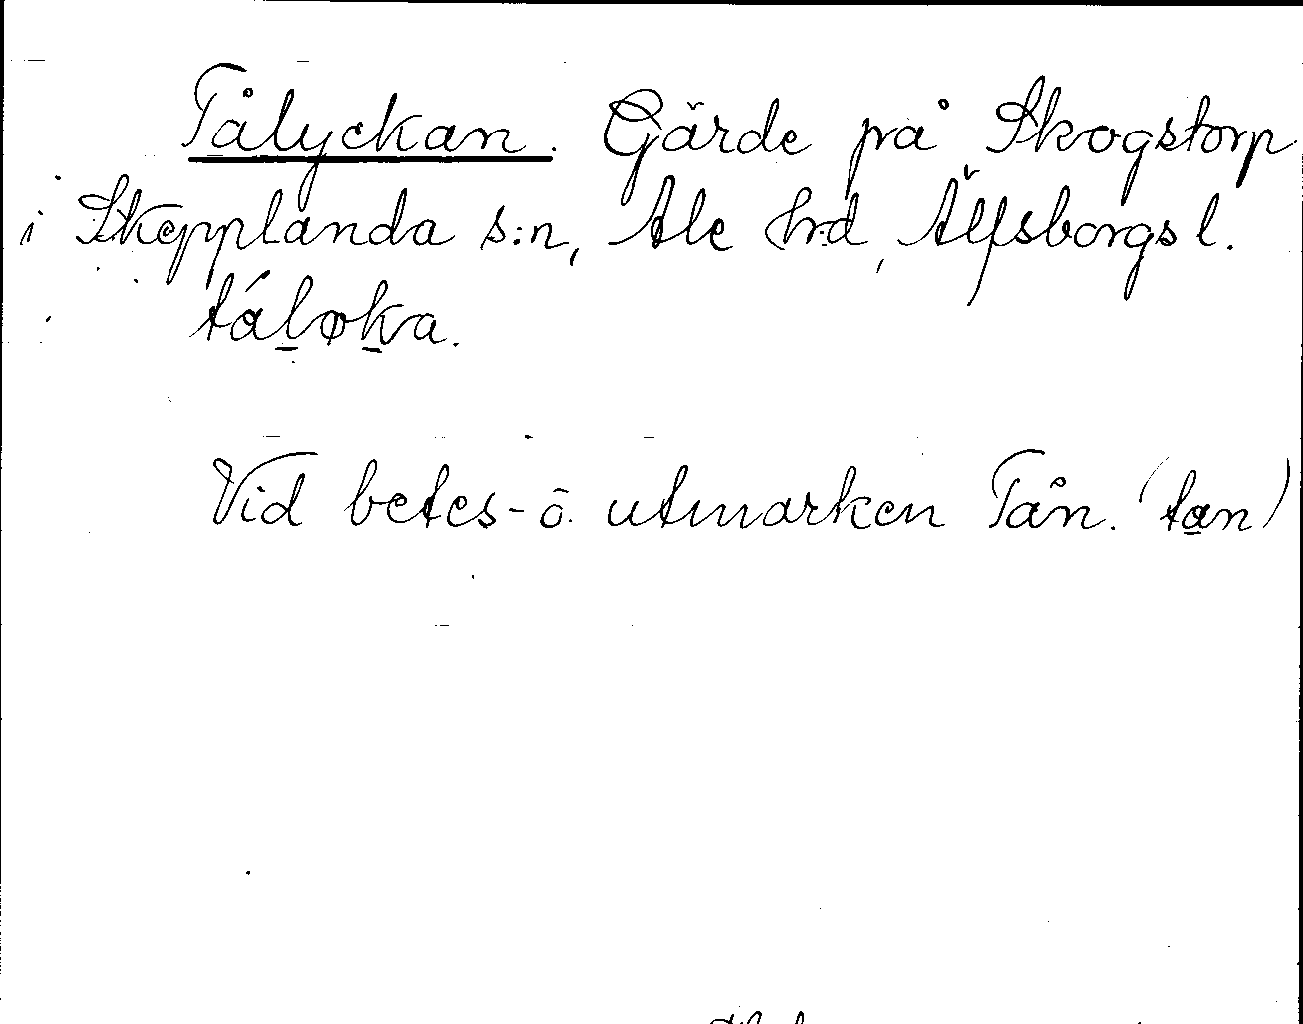 Tålyckan. Gärde på Skogstorp
i Skepplanda s:n, Ale hrd, Älfsborgs l.
táløka.
Vid betes- o. utmarken Tån. (tan)